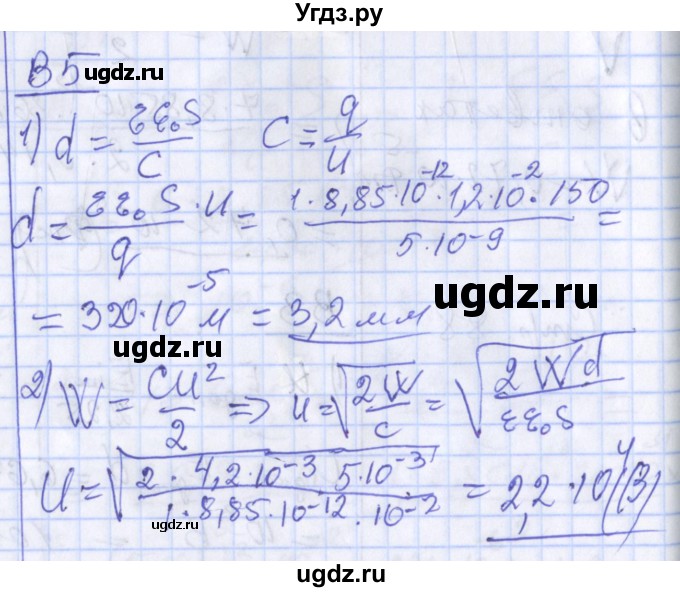 Угдз.ру
В 5
ugdz.ru
1) d = εε₀S/C    C = q/U
d = εε₀S·U/q = 1·8,85·10⁻¹²·1,2·10⁻²·150/5·10⁻⁹ =
ugdz.ru
ugdz.ru
= 320·10⁻⁵ м = 3,2 мм
ugdz.ru
ugdz.ru
2) W = CU²/2 => U = √(2W/C) = √(2Wd/εε₀S)
U = √(2·4,2·10⁻³ 5·10⁻³/1·8,85·10⁻¹²·10⁻²) = 2,2·10⁴ (В)
ugdz.ru
ugdz.ru
ugdz.ru